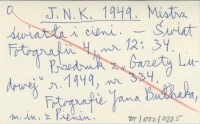 a J.N.K. 1949. Mistrz
światła i cieni. — Świat
Fotografii 4, nr 12: 34.
Przedruk z „Gazety Lu-
dowej" r. 1949, nr 334.
Fotografie Jana Bułhaka,
m.in. z Pienin.